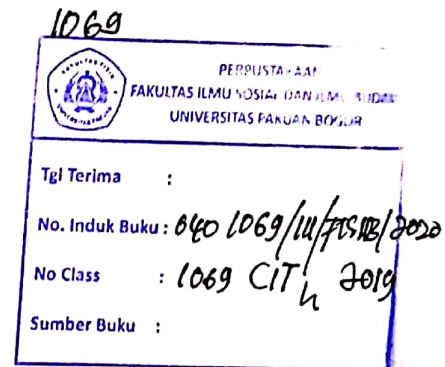 1069
PERPUSTAKAAN
FAKULTAS ILMU SOSIAL DAN ILMU BUDAYA
UNIVERSITAS PAKUAN BOGOR
Tgl Terima :
No. Induk Buku : 040 1069/III/FISIB/2020
No Class : 1069 CIT h 2019
Sumber Buku :